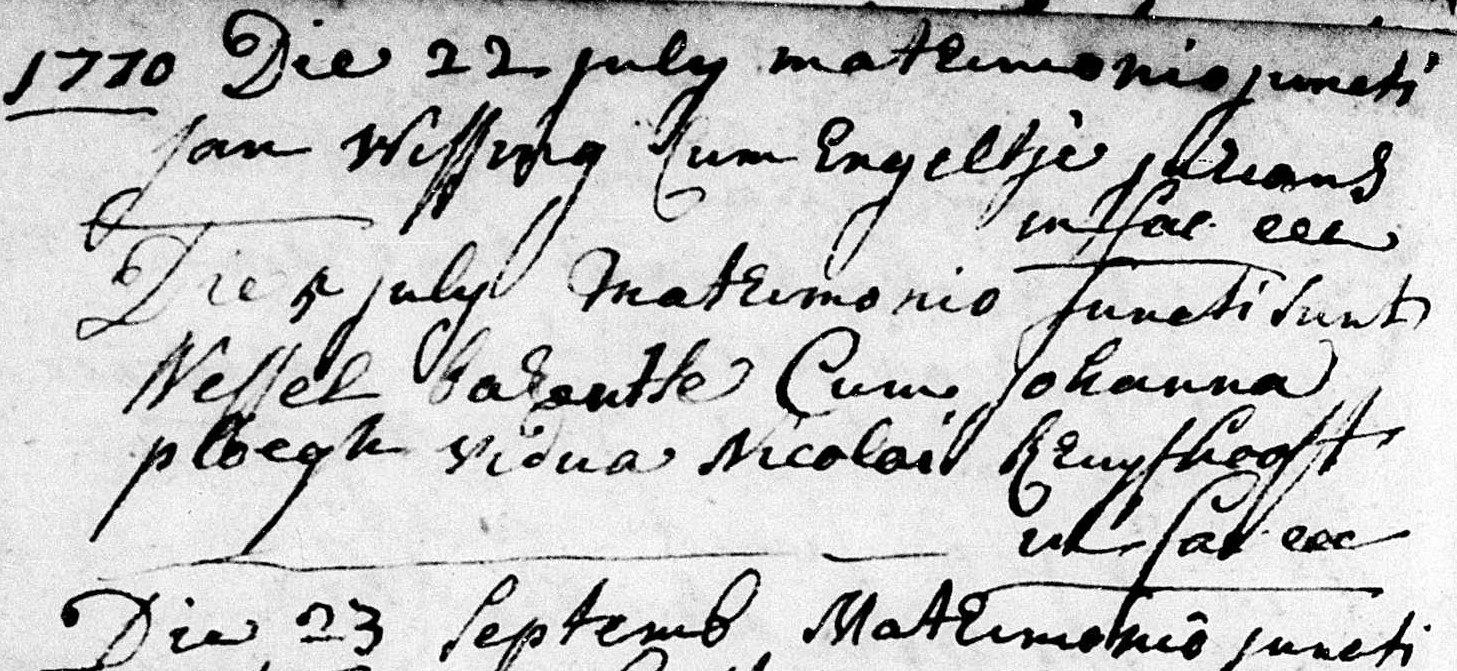 1770 Die 22 july matrimonio juncti
jan Wissing Cum Engeltje jurians
in fac ecc
Die 5 july Matrimonio juncti sunt
Wessel Cum johanna
ploegh vidua Nicolai Kruyshooft
in fac ecc
Die 23 Septemb Matrimonio juncti